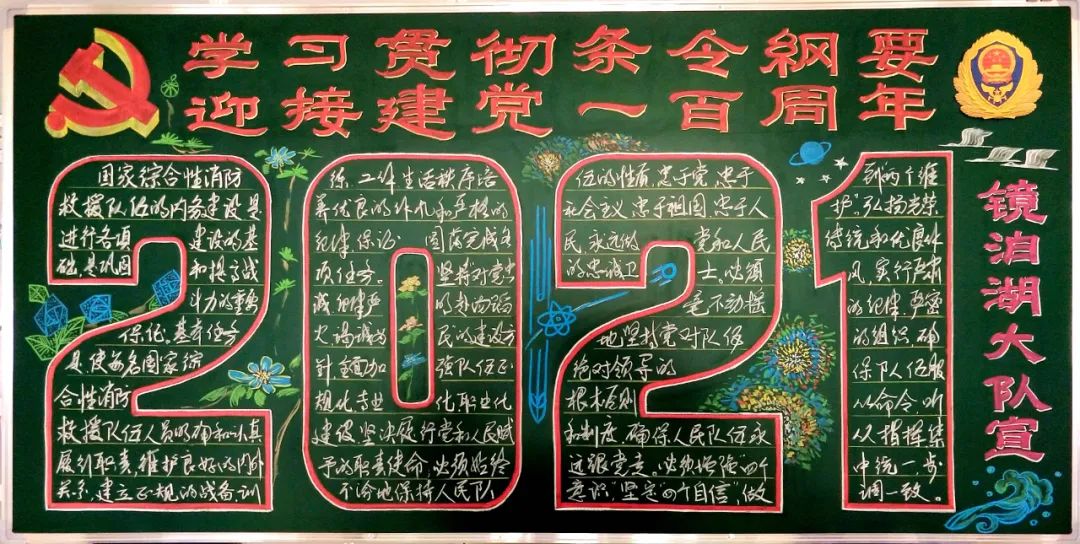 学习贯彻条令纲要
迎接建党一百周年
国家综合性消防
救援队伍的内务建设是
进行各项 建设的基
础,是巩固
和提高战
斗力的重要
保证。基本任务
是,使每名国家综
合性消防
救援队伍人员明确和认真
履行职责,维护良好的内外
关系,建立正规的战备、训
练、工作、生活秩序,培
养优良的作风和严格的
纪律,保证 圆满完成各
项任务。 坚持对党忠
诚、纪律严
明、赴汤蹈
火、竭诚为 民的建设方
针,全面加 强队伍正
规化、专业 化、职业化
建设,坚决履行党和人民赋
予的职责使命,必须始终
不渝地保持人民队
伍的性质,忠于党,忠于
社会主义,忠于祖国,忠于人
民,永远做 党和人民
的忠诚卫 士。必须
毫不动摇
地坚持党对队伍
绝对领导的
根本原则
和制度,确保人民队伍永
远跟党走。必须增强“四个
意识”坚定“四个自信”,做
到“两个维
护”。弘扬光荣
传统和优良作
风,实行严肃
的纪律,严密
的组织,确
保队伍服
从命令,听
从指挥,集
中统一,步
调一致。
镜泊湖大队宣